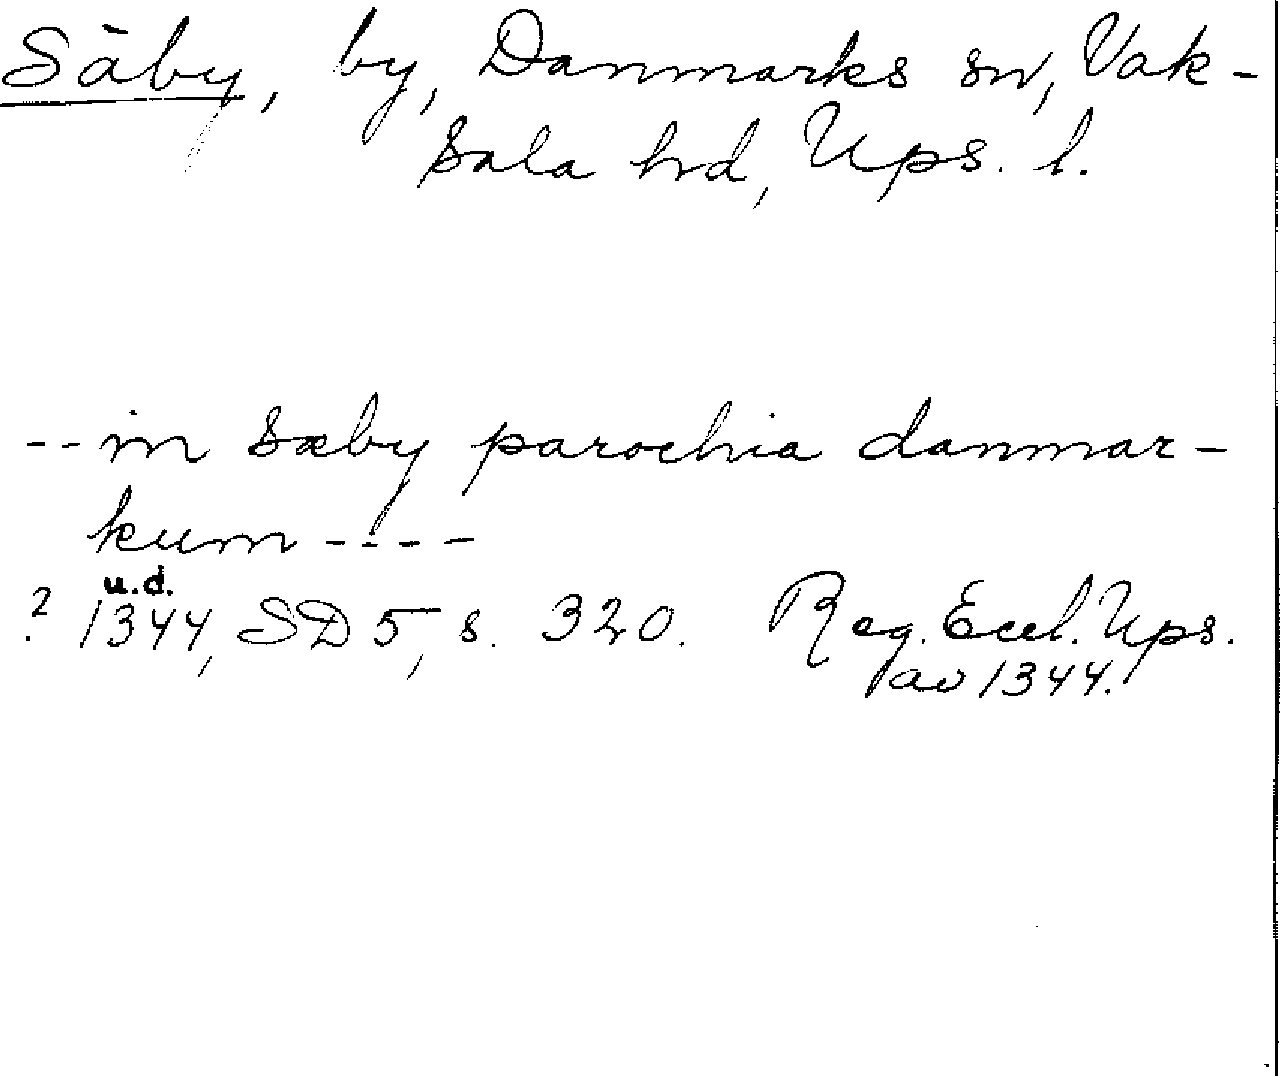 Säby, by, Danmarks sn, Vak-
sala hrd, Ups. l.
--in Sæby parochia danmar-
kum ----
u.d.
? 1344, SD 5, s. 320. Reg. Eccl. Ups.
av 1344.